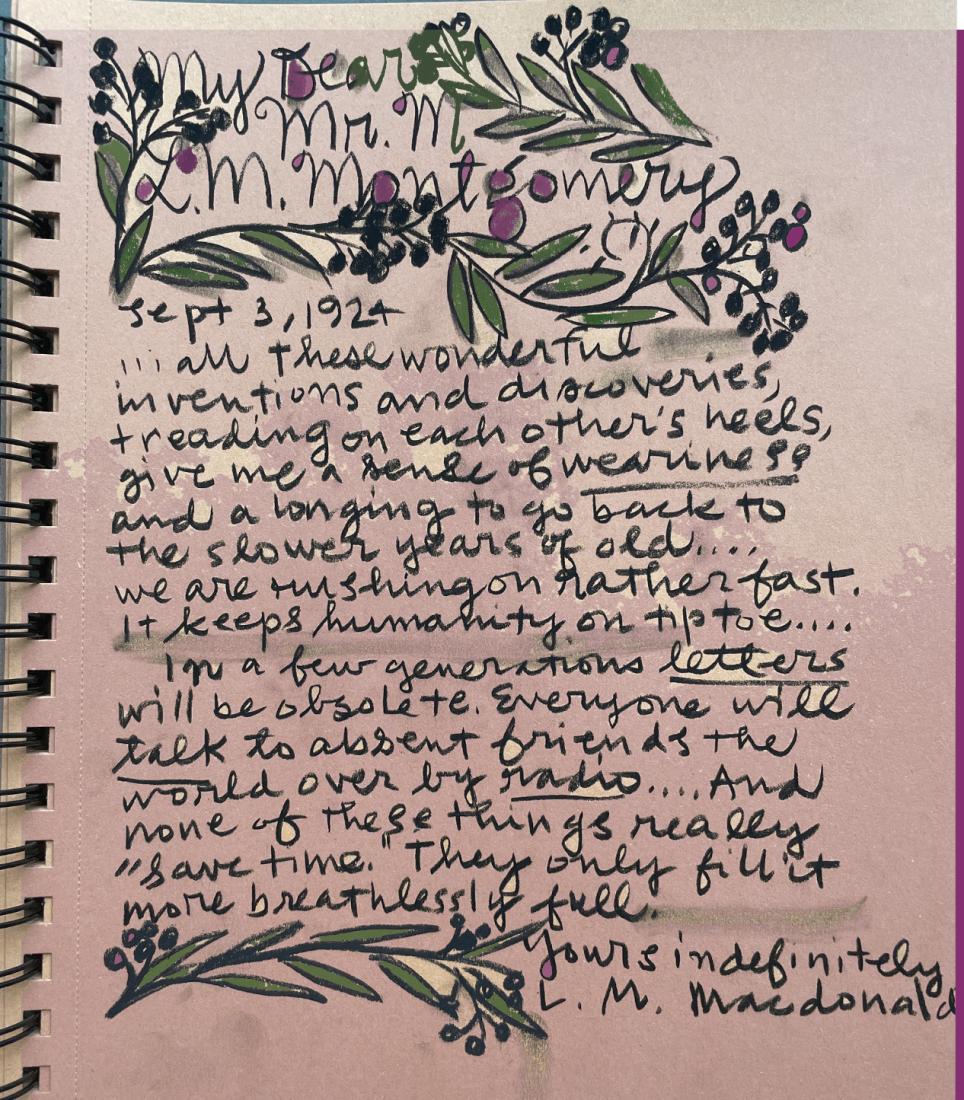 My Dear
Mr. M
L.M. Montgomery
Sept 3, 1924
... all these wonderful
inventions and discoveries,
treading on each other's heels,
give me a sense of weariness
and a longing to go back to
the slower years of old....
we are rushing on rather fast.
it keeps humanity on tiptoe....
In a few generations letters
will be obsolete. Everyone will
talk to absent friends the
world over by radio.... And
none of these things really
"save time." They only fill it
more breathlessly full.
yours indefinitely
L. M. Macdonald